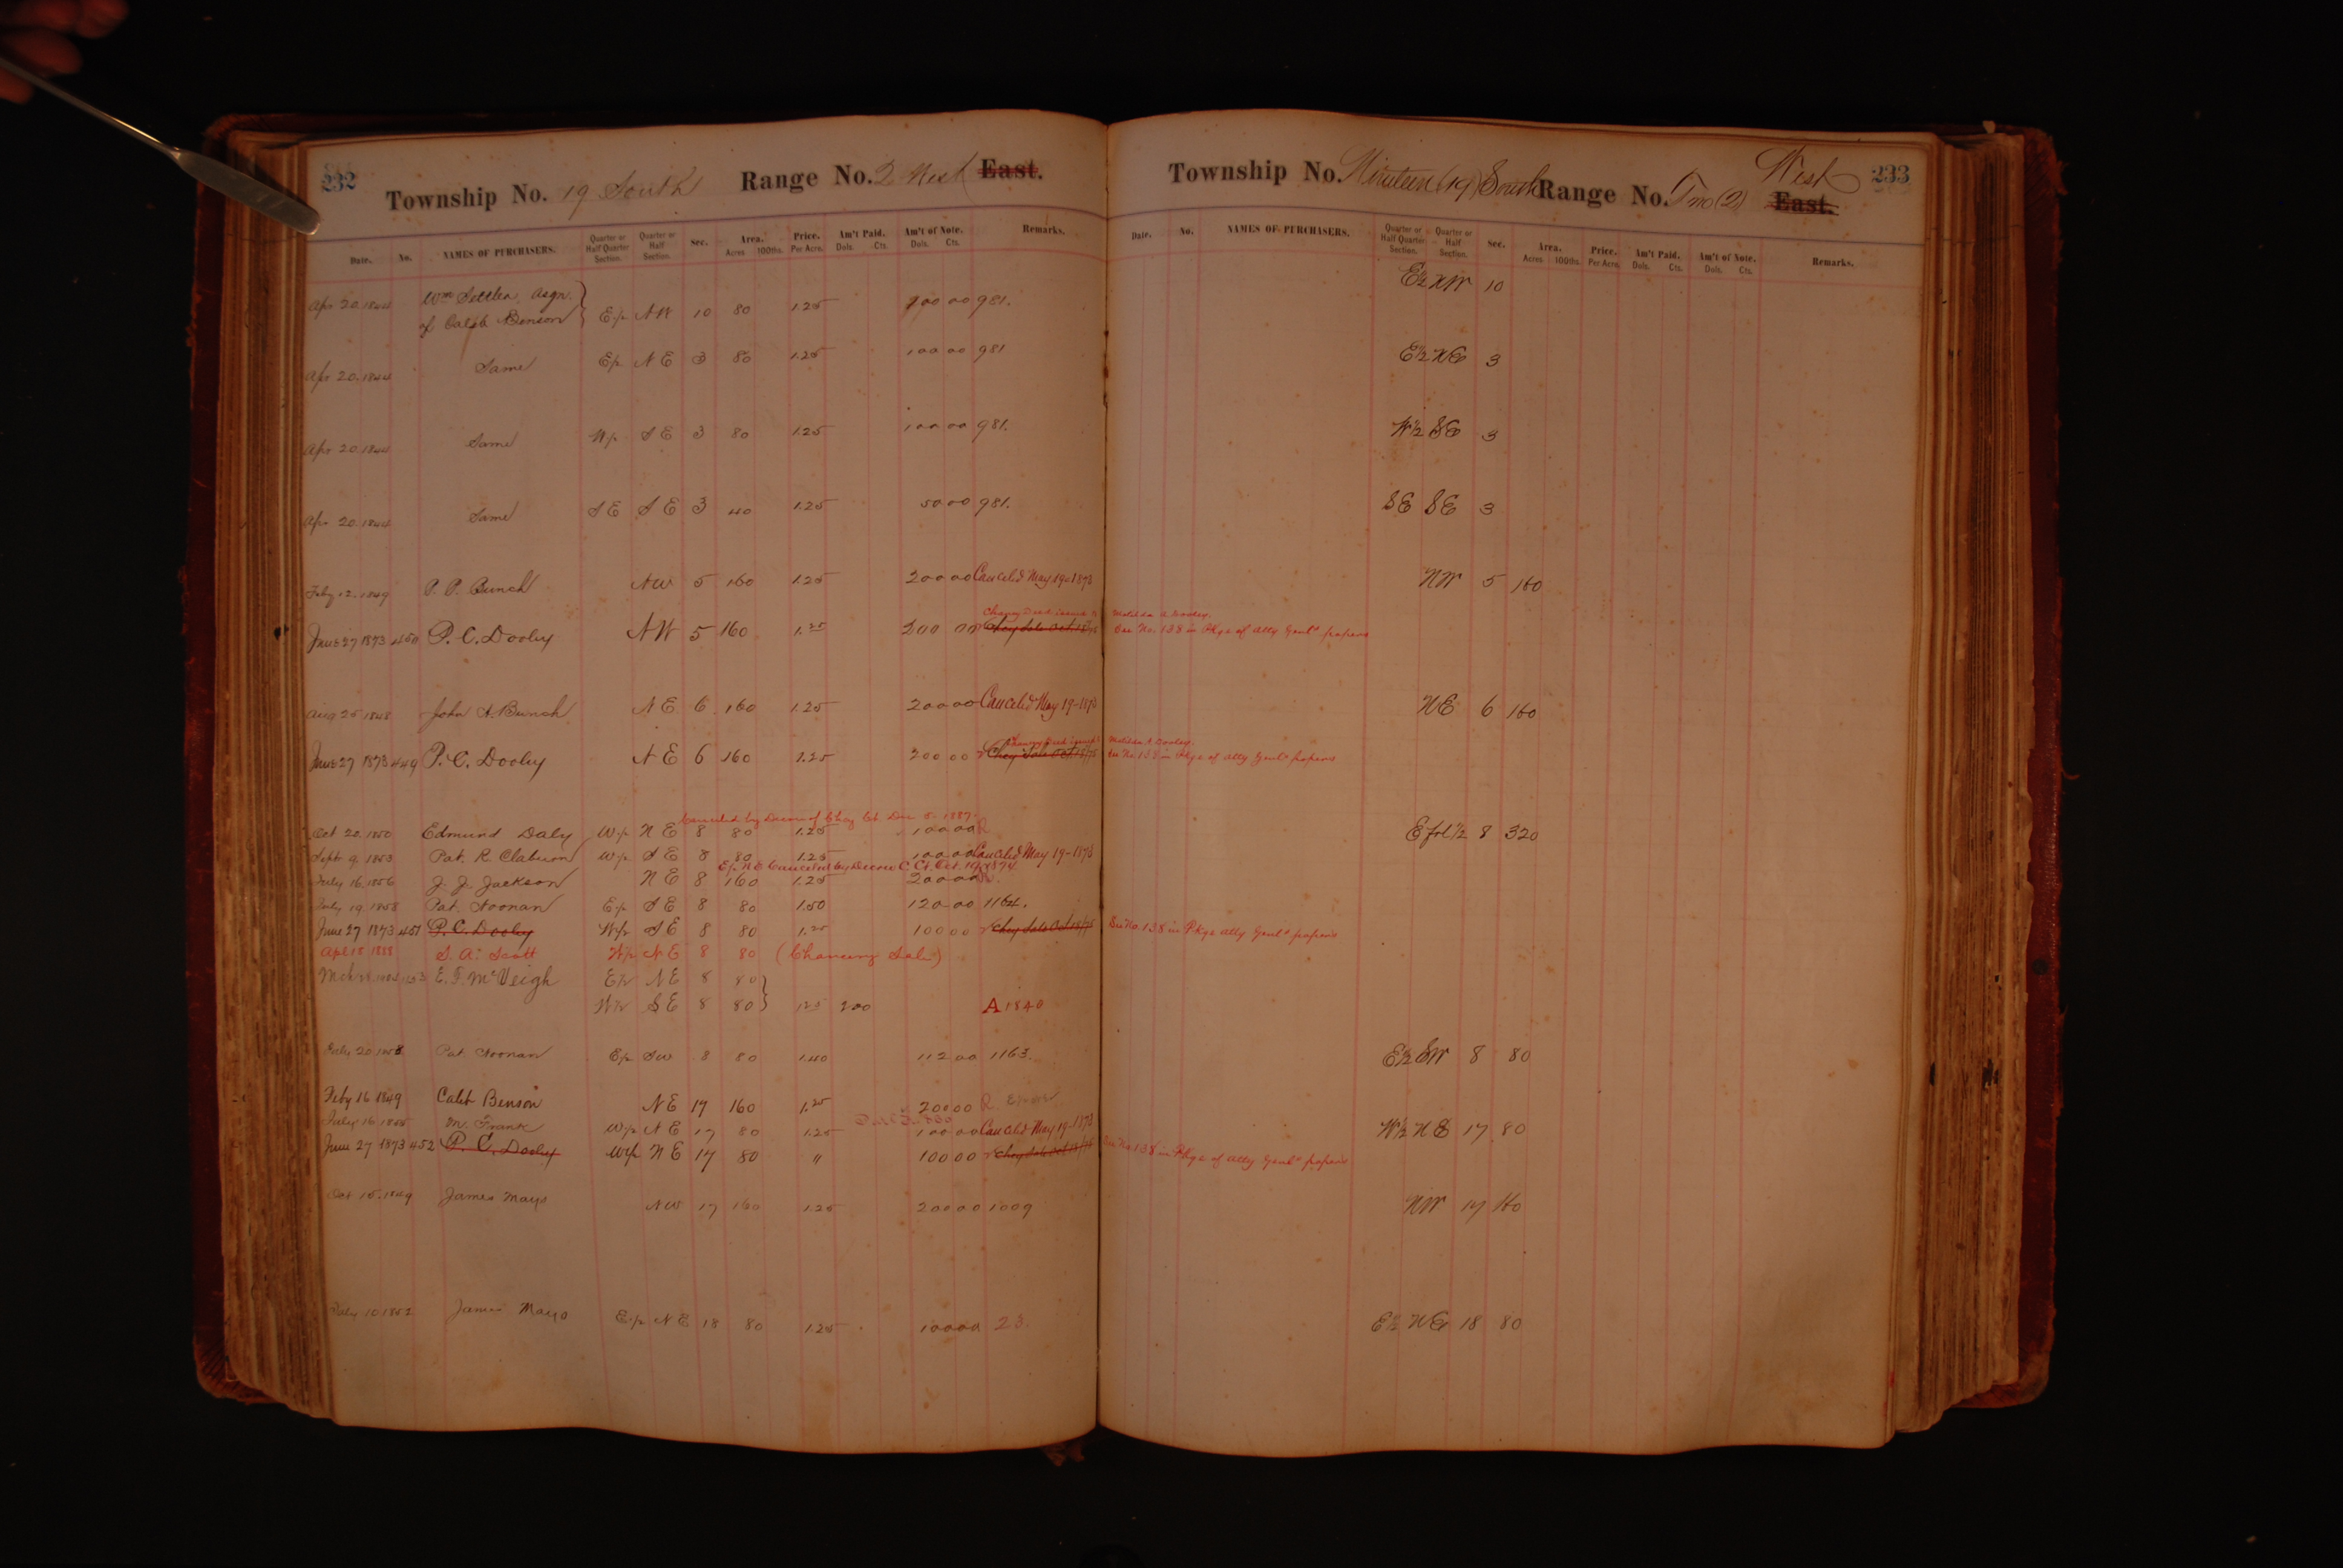 232
Township No. 19 South Range No. 2 West East.
Date. No. NAMES OF PURCHASERS. Quarter or Half Quarter Section. Quarter or Half Section. Sec. Area. Acres 100ths. Price. Per Acre. Am't Paid. Dols. Cts. Am't of Note. Dols. Cts. Remarks.
Apr 20. 1844 Wm Settler. Asgn. of Caleb Benson E½ NW 10 80 1.25 100 00 981.
Apr 20. 1844 Same E½ NE 3 80 1.25 100 00 981
Apr 20. 1844 Same W½ SE 3 80 1.25 100 00 981.
Apr 20. 1844 Same SE SE 3 40 1.25 50 00 981.
Feby 12. 1849 P. P. Bunch NW 5 160 1.25 200 00 Canceled May 19 1873
Chancy Deed issued to
June 27 1873 450 P. C. Dooly NW 5 160 1.25 200 00 Chcy Sale Oct 18/75
Aug 25 1848 John A. Bunch NE 6 160 1.25 200 00 Canceled May 19-1873
Chancy Deed issued
June 27 1873 449 P. C. Dooly NE 6 160 1.25 200 00 Chcy Sale Oct 18/75
Canceled by Decree of Chcy Ct Dec 5. 1887.
Oct 20. 1850 Edmund Daly W½ NE 8 80 1.25 100 00 R
Septr 9. 1853 Pat. R. Claburn W½ SE 8 80 1.25 100 00 Canceled May 19-1873
E½ NE Canceled by Decree C. Ct. Oct. 19, 1874
July 16. 1856 J. J. Jackson NE 8 160 1.25 200 00 R.
July 19. 1858 Pat. Noonan E½ SE 8 80 1.50 120 00 1164.
June 27 1873 451 P. C. Dooly W½ SE 8 80 1.25 100 00 Chcy Sale Oct 18/75
Apl 18 1888 S. A. Scott W½ NE 8 80 (Chancery Sale)
E. F. McVeigh E½ NE 8 80
W½ SE 8 80 1.25 200 A 1840
July 20 1858 Pat Noonan E½ SW 8 80 1.40 112 00 1163.
Feby 16 1849 Caleb Benson NE 17 160 1.25 200 00 R
July 16 1855 M. Frank W½ NE 17 80 1.25 100 00 Canceled May 19-1873
June 27 1873 452 P. C. Dooly W½ NE 17 80 " 100 00 Chcy Sale Oct 18/75
Oct 15. 1849 James Mays NW 17 160 1.25 200 00 1009
July 10 1852 James Mayo E½ NE 18 80 1.25 100 00 23.
Township No. Nineteen (19) South Range No. Two (2) West East. 233
Date. No. NAMES OF PURCHASERS. Quarter or Half Quarter Section. Quarter or Half Section. Sec. Area. Acres 100ths. Price. Per Acre. Am't Paid. Dols. Cts. Am't of Note. Dols. Cts. Remarks.
E½ NW 10
E½ NE 3
W½ SE 3
SE SE 3
NW 5 160
Matilda A Dooley.
See No. 138 in Pkge of Atty Genl's papers
NE 6 160
Matilda A Dooley.
See No. 138 in Pkge of Atty Genl's papers
E frl ½ 8 320
See No. 138 in Pkge Atty Genl's papers
E½ SW 8 80
W½ NE 17 80
See No 138 in Pkge of Atty Genl's papers
NW 17 160
E½ NE 18 80